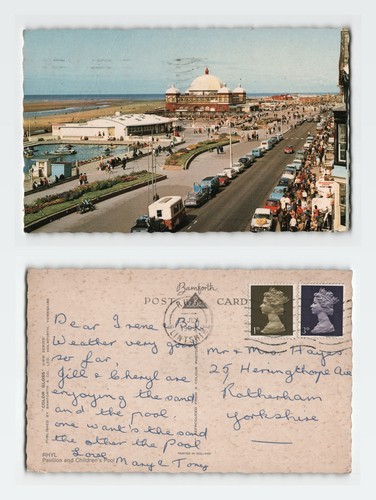 Bamforth
POST CARD
Dear Irene & Bob,
Weather very good
so far,
Jill & Cheryl are
enjoying the sand
and the pool.
one want's the sand
the other the pool
Love Mary & Tony
Mr & Mrs Hayes
25 Herringthorpe Ave
Rotherham
Yorkshire
RHYL
Pavilion and Children's Pool
RHYL
FLINTSHIRE
1D
3D
"COLOR GLOSS" VIEW SERIES